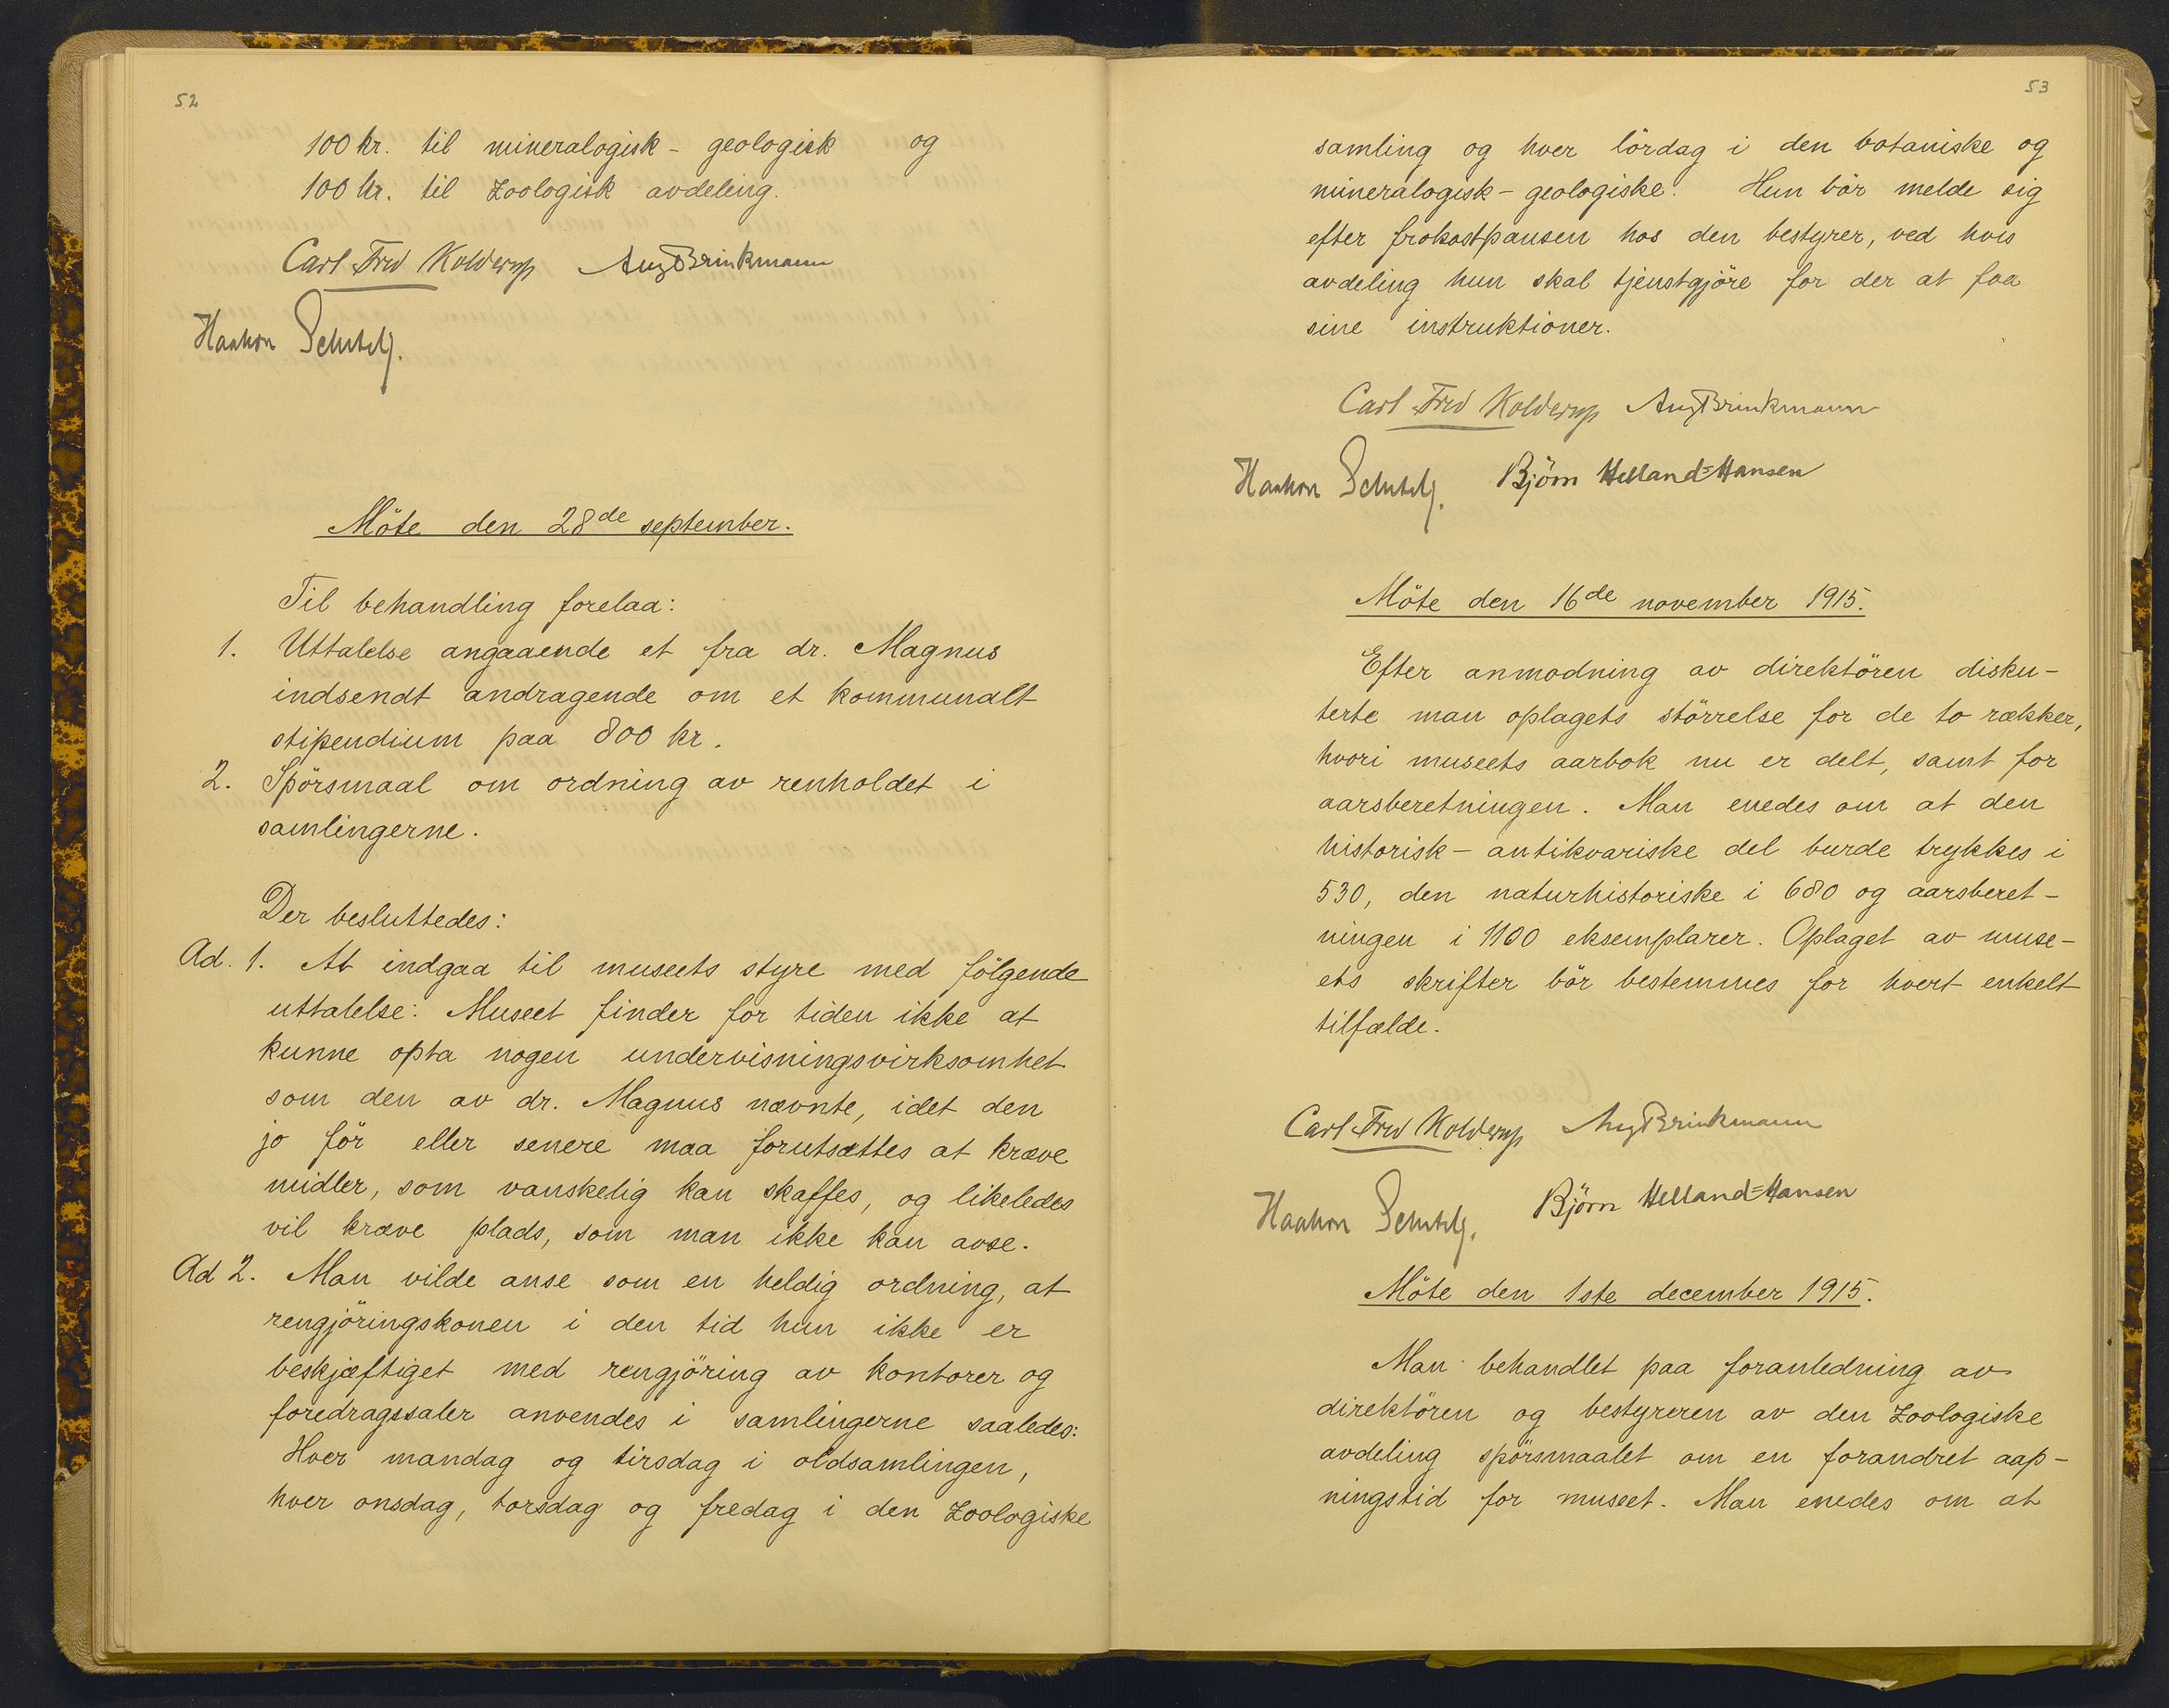 52
100 kr. til mineralogisk - geologisk og
100 kr. til zoologisk avdeling.
Carl Fred Kolderup Aug Brinkmann
Haakon Schetelig.
Möte den 28de september.
Til behandling forelaa:
1. Uttalelse angaaende et fra dr. Magnus
indsendt andragende om et kommunalt
stipendium paa 800 kr.
2. Spörsmaal om ordning av renholdet i
samlingerne.
Der besluttedes:
Ad. 1. At indgaa til museets styre med fölgende
uttalelse: Museet finder for tiden ikke at
kunne opta nogen undervisningsvirksomhet
som den av dr. Magnus nævnte, idet den
jo för eller senere maa forutsættes at kræve
midler, som vanskelig kan skaffes, og likeledes
vil kræve plads, som man ikke kan avse.
Ad 2. Man vilde anse som en heldig ordning, at
rengjöringskonen i den tid hun ikke er
beskjæftiget med rengjöring av kontorer og
foredragssaler anvendes i samlingerne saaledes:
Hver mandag og tirsdag i oldsamlingen,
hver onsdag, torsdag og fredag i den zoologiske
53
samling og hver lördag i den botaniske og
mineralogisk - geologiske. Hun bör melde sig
efter frokostpausen hos den bestyrer, ved hvis
avdeling hun skal tjenstgjöre for der at faa
sine instruktioner.
Carl Fred Kolderup Aug Brinkmann
Haakon Schetelig. Björn Helland-Hansen
Möte den 16de november 1915.
Efter anmodning av direktören disku-
terte man oplagets störrelse for de to rækker,
hvori museets aarbok nu er delt, samt for
aarsberetningen. Man enedes om at den
historisk - antikvariske del burde trykkes i
530, den naturhistoriske i 680 og aarsberet-
ningen i 1100 eksemplarer. Oplaget av muse-
ets skrifter bör bestemmes for hvert enkelt
tilfælde.
Carl Fred Kolderup Aug Brinkmann
Haakon Schetelig. Björn Helland-Hansen
Möte den 1ste december 1915.
Man behandlet paa foranledning av
direktören og bestyreren av den zoologiske
avdeling spörsmaalet om en forandret aap-
ningstid for museet. Man enedes om at